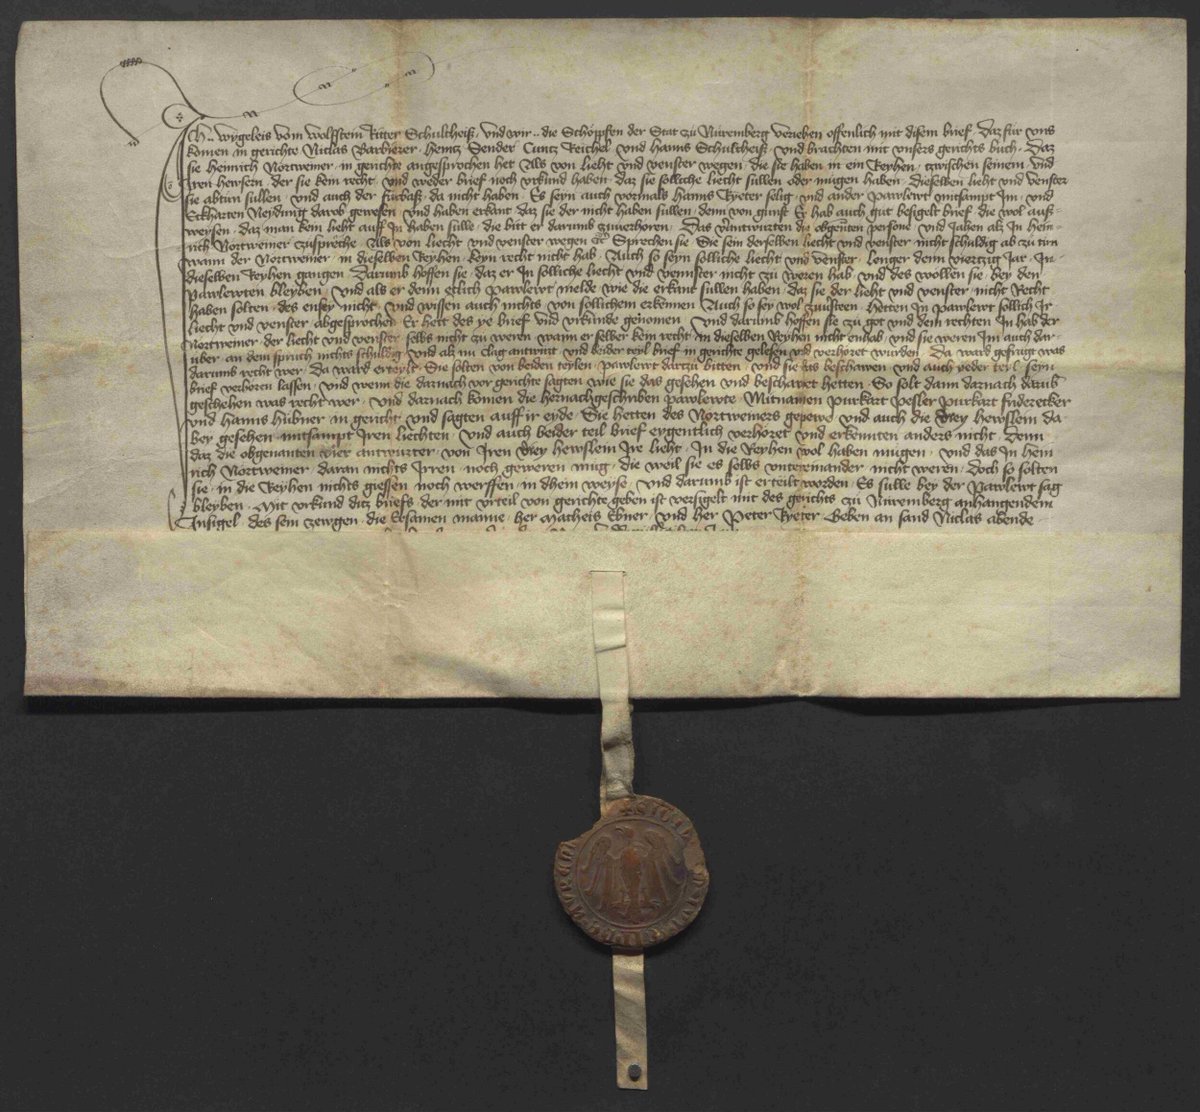 Ich .. wygeleis vom wolfstein Ritter Schultheiß, vnd wir .. die Schöpffen der Stat zu Nuremberg veriehen offenlich mit disem brief. Daz für vns
komen in gerichte Niclas Barbierer. Heintz Sender Cuntz Reichel vnd hanns Schultheiß. vnd brachten mit vnsers gerichts buch. Daz
sie Heinrich Nortweiner. in gerichte angesprochen het Als von liecht vnd venster wegen. die sie haben in ein Reyhen. zwischen seinem vnd
iren hewsern. der sie kein recht. vnd weder brief noch vrkund haben. daz sie solliche liecht sullen oder mügen haben. dieselben liecht vnd venster
sie abtun sullen. vnd auch der fürbaß. da nicht haben. Es seyn auch vormals hanns Ryeter selig. vnd ander pawlewt mitsampt Im. vnd
Eckharten Neydung darob gewesen. vnd haben erkant daz sie der nicht haben sullen. denn von gunst Er hab auch gut besigelt brief die wol auß-
weysen. daz man kein liecht auff In haben sülle. die bitt er darumb zuuerhoren. Das v'antwurten die obgenanten persone vnd Jahen als In hein-
rich Nortweiner zuspreche. Als von liecht vnd venster wegen etc Sprechen sie. Sie sein derselben liecht vnd venster nicht schuldig ab zu tun
wann der Nortweiner. in dieselben Reyhen. keyn recht nicht hab. Auch so seyn solliche liecht vnd venster. lenger denn viertzig Jar. In-
dieselben Reyhen gangen. Darumb hoffen sie. daz er In solliche liecht vnd vennster nicht zu weren hab. vnd des wöllen sie. bey den
pawlewten bleyben. vnd als er denn etlich pawlewt melde wie die erkant sullen haben. daz sie der liecht vnd venster. nicht Recht
haben solten. des ensey nicht. vnd wissen auch nichts. von sollichem erkennen Auch so sey wol zuwissen. hetten In pawlewt sollich Ir
liecht vnd venster. abgesprochen. Er hett des ye brief vnd vrkunde genomen. vnd darumb hoffen sie zu got vnd dem rechten In hab der
Nortweiner. der liecht vnd venster selbs nicht zu weren. wann er selber kein recht. in dieselben Reyhen nicht enhab. vnd sie weren Im auch dar-
über an dem spruch nichts schuldig. vnd als nu clag antwurt. vnd beider teil brief in gerichte gelesen vnd verhöret wurden. Da ward gefragt was
darumb recht wer. Da ward erteylt. Sie solten von beiden teylen. pawlewt dartzu bitten. vnd sie das beschawen. vnd auch yeder teyl. seyn
brief verhoren lassen. vnd wenn die darnach vor gerichte sagten wie sie das gesehen vnd beschawet hetten. So solt dann darnach darumb
geschehen was recht wer. vnd darnach komen die hernachgeschriben pawlewte. Mitnamen purkart pesler purkart
vnd hanns hübner. in gericht. vnd sagten auff ir eyde. Sie hetten des Nortweiners gepewe. vnd auch die drey hewslein da-
bey gesehen. mitsampt Iren liechten. vnd auch beider teil brief eygentlich verhoret vnd erkennten anders nicht. Denn
daz die obgenanten vier antwurter. von Iren drey hewslein Ire liecht. In die Reyhen wol haben mügen. vnd das In hein
rich Nortweiner. daran nichts Irren. noch geweren müg. die weil sie es selbs vntereinander nicht weren. Doch so solten
sie. in die Reyhen nichts giessen noch werffen. in dhein weyse. vnd darumb ist erteilt worden. Es sülle bey der pawlewt sag
bleyben. Mit vrkund ditz briefs. der mit vrteil von gerichte geben ist versigelt mit des gerichts zu Nüremberg anhangendem
Insigel. des sein zewgen. die Ersamen manne. her Matheis Ebner. vnd her Peter Ryeter. Geben an sand Niclas abende